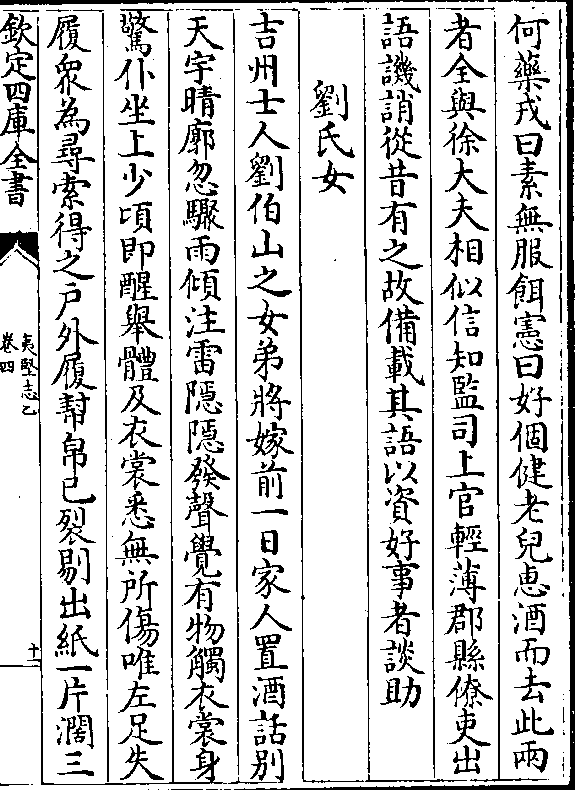 何藥戎曰素無服餌憲曰好個健老兒恚酒而去此兩
者全與徐大夫相似信知監司上官輕薄郡縣僚吏出
語譏誚從昔有之故備載其語以資好事者談助
劉氏女
吉州士人劉伯山之女弟將嫁前一日家人置酒話別
天宇晴廓忽驟雨傾注雷隱隱發聲覺有物觸衣裳身
驚仆坐上少頃即醒舉體及衣裳悉無所傷唯左足失
履衆為尋索得之戶外履幇帛已裂剔出紙一片濶三
欽定四庫全書
夷堅志乙
卷四
十一